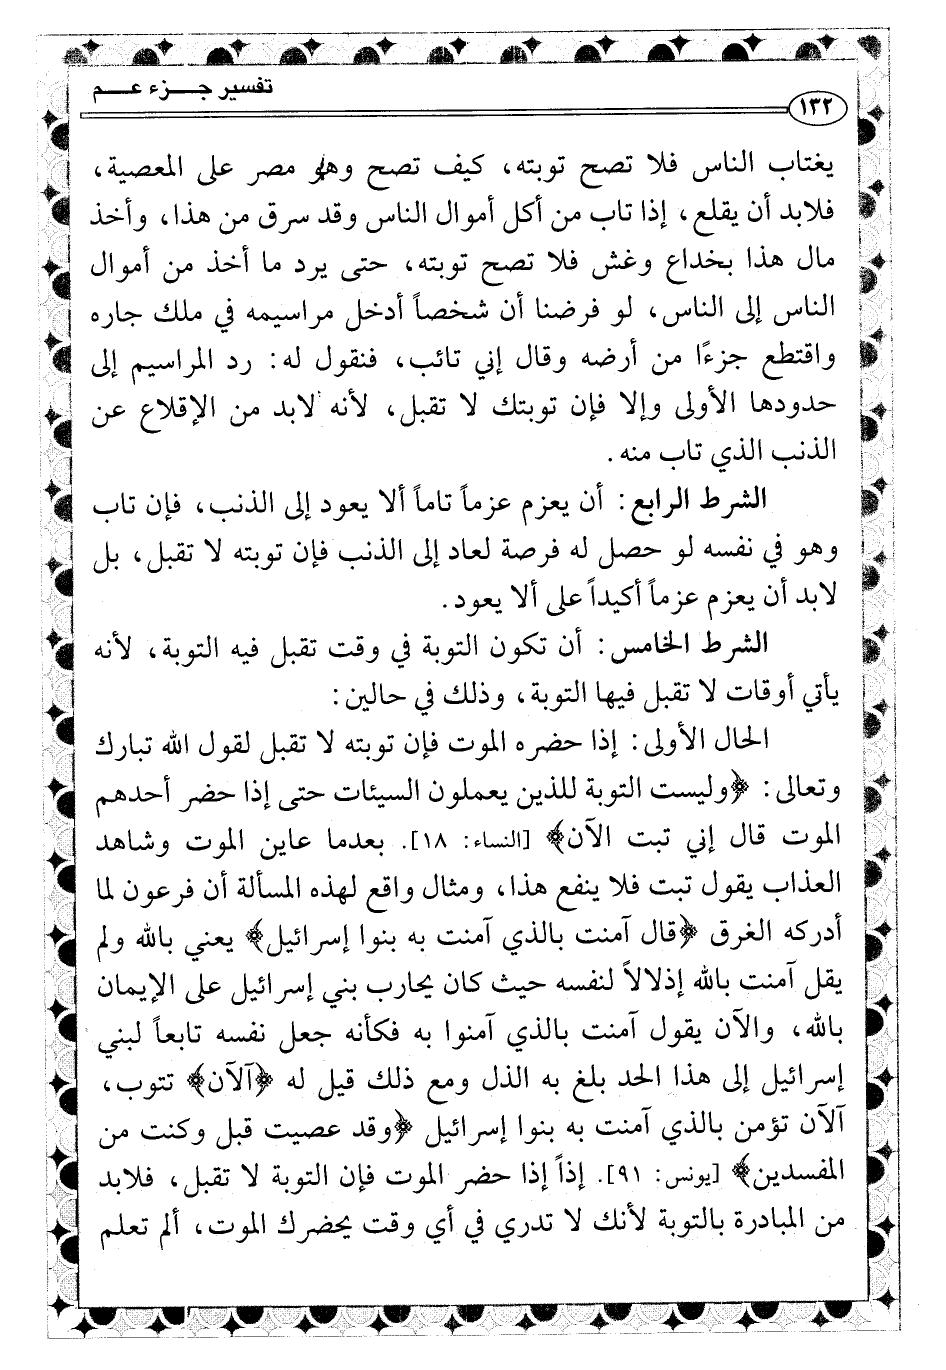 تفسير جـــزء عـــم
١٣٢
يغتاب الناس فلا تصح توبته، كيف تصح وهو مصر على المعصية،
فلابد أن يقلع، إذا تاب من أكل أموال الناس وقد سرق من هذا، وأخذ
مال هذا بخداع وغش فلا تصح توبته، حتى يرد ما أخذ من أموال
الناس إلى الناس، لو فرضنا أن شخصاً أدخل مراسيمه في ملك جاره
واقتطع جزءًا من أرضه وقال إني تائب، فنقول له: رد المراسيم إلى
حدودها الأولى وإلا فإن توبتك لا تقبل، لأنه لابد من الإقلاع عن
الذنب الذي تاب منه.
الشرط الرابع: أن يعزم عزماً تاماً ألا يعود إلى الذنب، فإن تاب
وهو في نفسه لو حصل له فرصة لعاد إلى الذنب فإن توبته لا تقبل، بل
لابد أن يعزم عزماً أكيداً على ألا يعود.
الشرط الخامس: أن تكون التوبة في وقت تقبل فيه التوبة، لأنه
يأتي أوقات لا تقبل فيها التوبة، وذلك في حالين:
الحال الأولى: إذا حضره الموت فإن توبته لا تقبل لقول الله تبارك
وتعالى: ﴿وليست التوبة للذين يعملون السيئات حتى إذا حضر أحدهم
الموت قال إني تبت الآن﴾ [النساء: ١٨]. بعدما عاين الموت وشاهد
العذاب يقول تبت فلا ينفع هذا، ومثال واقع لهذه المسألة أن فرعون لما
أدركه الغرق ﴿قال آمنت بالذي آمنت به بنوا إسرائيل﴾ يعني بالله ولم
يقل آمنت بالله إذلالاً لنفسه حيث كان يحارب بني إسرائيل على الإيمان
بالله، والآن يقول آمنت بالذي آمنوا به فكأنه جعل نفسه تابعاً لبني
إسرائيل إلى هذا الحد بلغ به الذل ومع ذلك قيل له ﴿آلآن﴾ تتوب،
آلآن تؤمن بالذي آمنت به بنوا إسرائيل ﴿وقد عصيت قبل وكنت من
المفسدين﴾ [يونس: ٩١]. إذاً إذا حضر الموت فإن التوبة لا تقبل، فلابد
من المبادرة بالتوبة لأنك لا تدري في أي وقت يحضرك الموت، ألم تعلم